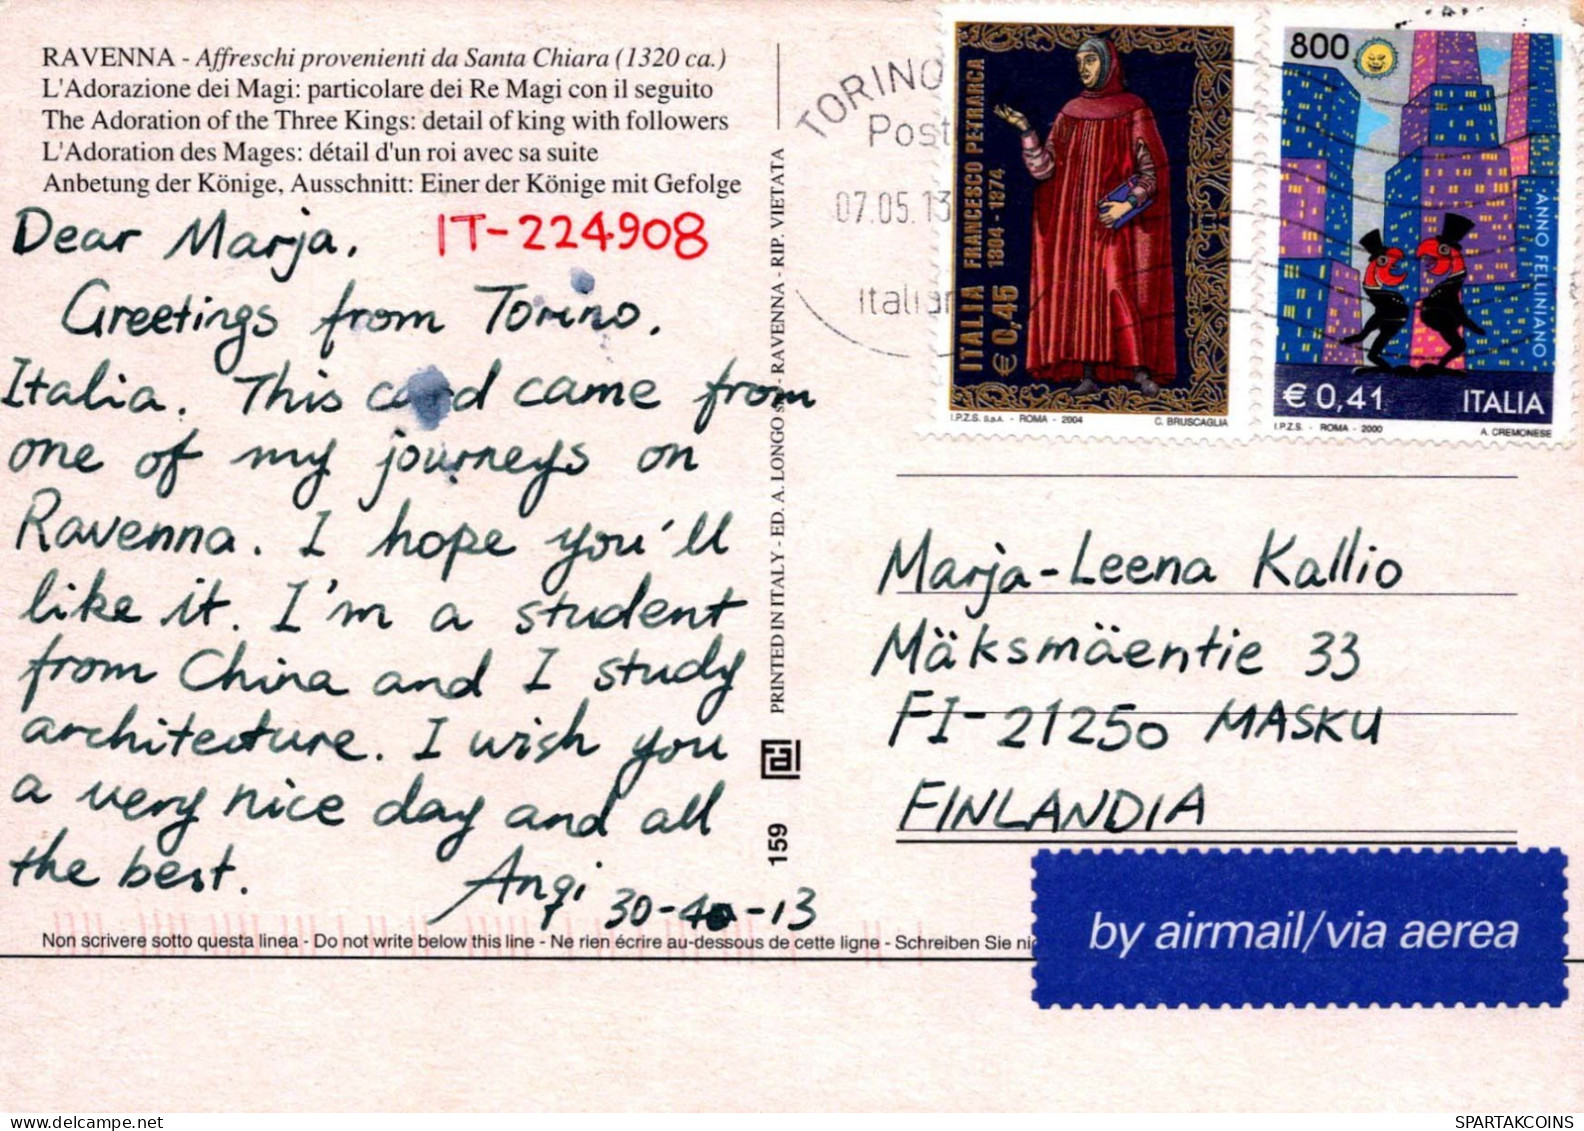 RAVENNA - Affreschi provenienti da Santa Chiara (1320 ca.)
L'Adorazione dei Magi: particolare dei Re Magi con il seguito
The Adoration of the Three Kings: detail of king with followers
L'Adoration des Mages: détail d'un roi avec sa suite
Anbetung der Könige, Ausschnitt: Einer der Könige mit Gefolge
Dear Marja, IT-224908
Greetings from Torino,
Italia. This card came from
one of my journeys on
Ravenna. I hope you'll
like it. I'm a student
from China and I study
architecture. I wish you
a very nice day and all
the best.
Anqi 30-4-13
Non scrivere sotto questa linea - Do not write below this line - Ne rien écrire au-dessous de cette ligne - Schreiben Sie
PRINTED IN ITALY - ED. A. LONGO - RAVENNA - RIP. VIETATA
159
TORINO
Post
07.05.13
Italia
ITALIA FRANCESCO PETRARCA
€ 0,45 1304 - 1374
I.P.Z.S. S.p.A. - ROMA - 2004 C. BRUSCAGLIA
800
ANNO FELLINIANO
€ 0,41 ITALIA
I.P.Z.S. - ROMA - 2000 A. CREMONESE
Marja-Leena Kallio
Mäksmäentie 33
FI-21250 MASKU
FINLANDIA
by airmail/via aerea
SPARTAKCOINS